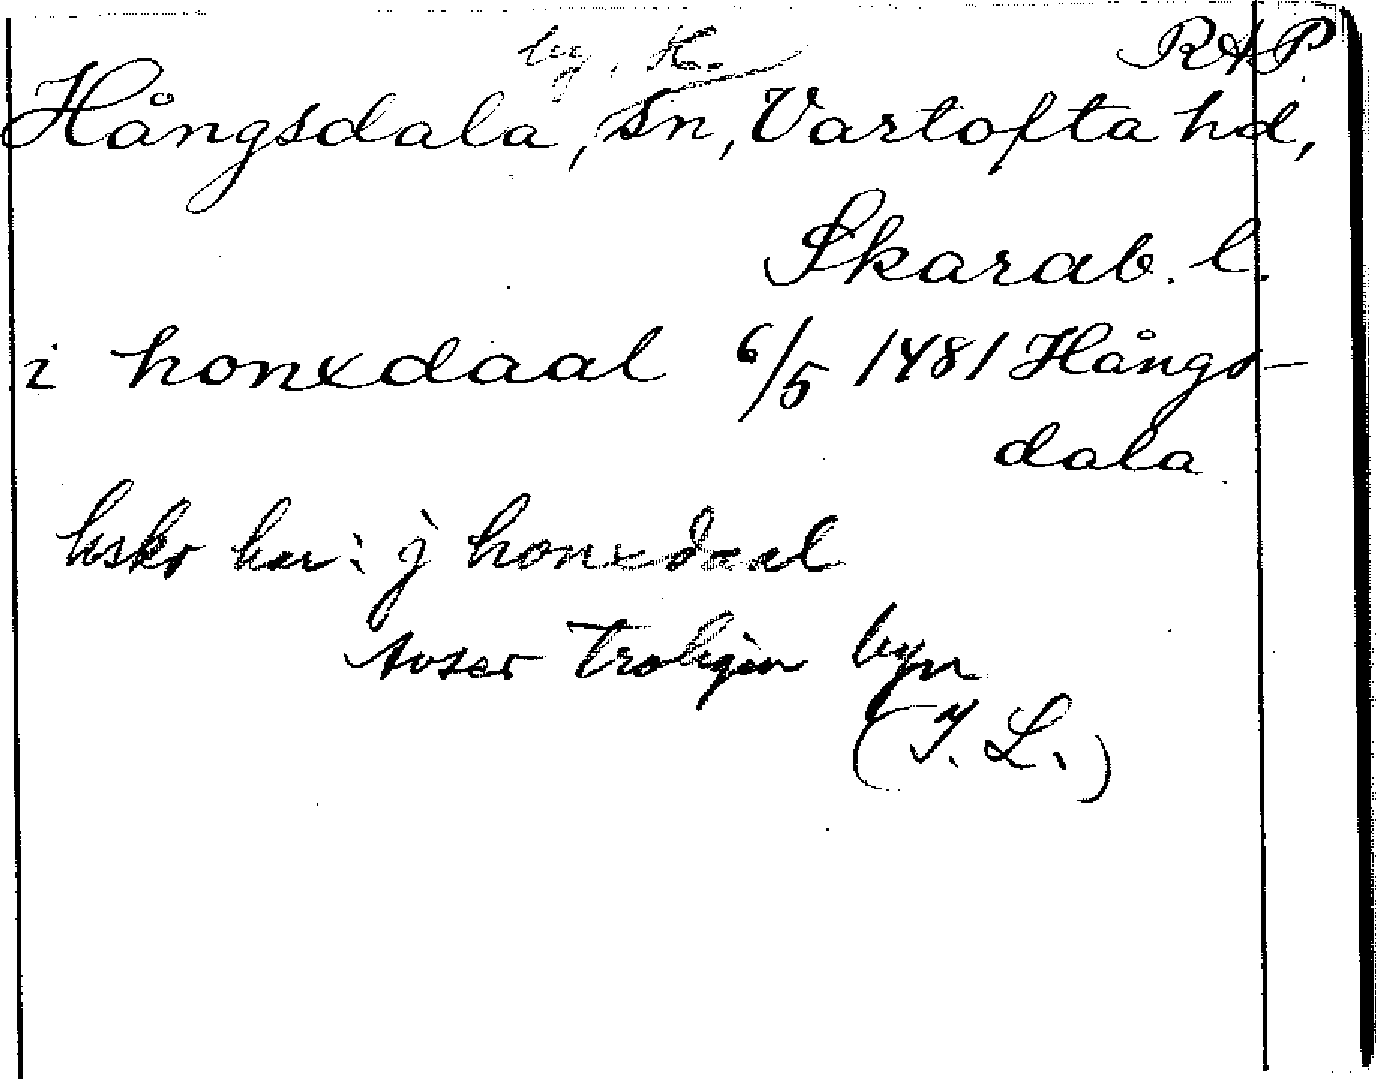 by, K. RAP
Hångsdala, sn, Vartofta hd,
Skarab. l.
i honxdaal 6/5 1481 Hångs-
dala
hskr har: j honxdaal
Avser troligen byn
(I. L.)